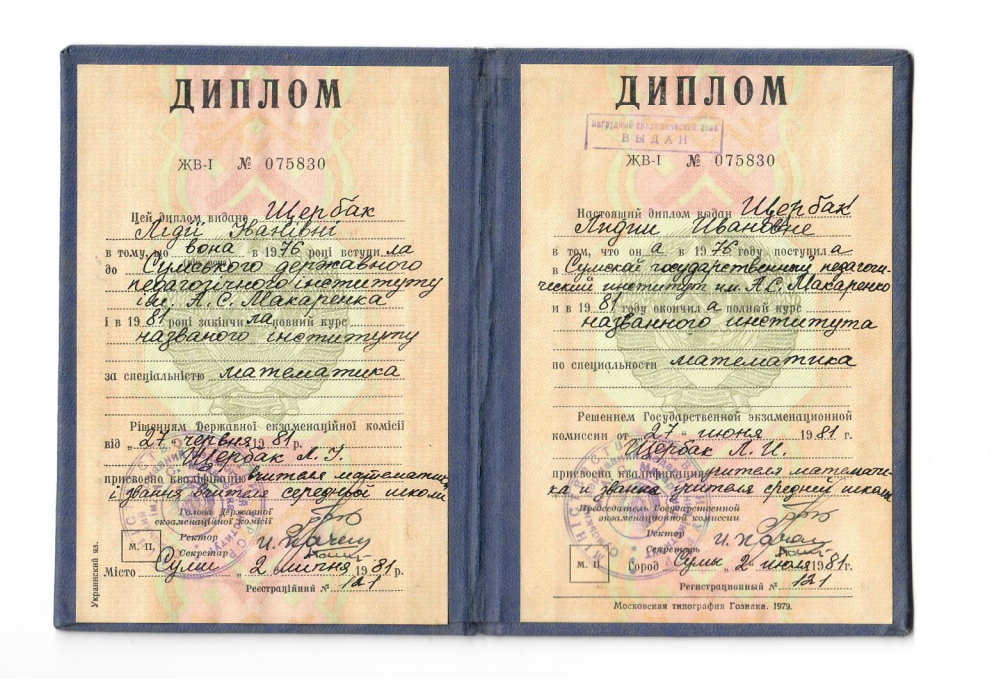 ДИПЛОМ
ЖВ-І № 075830
Цей диплом видано Щербак
Лідії Іванівні
в тому, що вона в 1976 році вступила
до Сумського державного
педагогічного інституту
ім. А.С. Макаренка
і в 1981 році закінчила повний курс
названого інституту
за спеціальністю математика
Рішенням Державної екзаменаційної комісії
від „27" червня 1981 р.
Щербак Л. І.
присвоєно кваліфікацію вчителя математики
і звання вчителя середньої школи
Голова Державної
екзаменаційної комісії
Ректор
Секретар
М. П.
Місто Суми „ 2 липня 1981 р.
Реєстраційний № 121
Украинский яз.
ДИПЛОМ
Нагрудный академический знак
ВЫДАН
ЖВ-I № 075830
Настоящий диплом выдан Щербак
Лидии Ивановне
в том, что она в 1976 году поступила
в Сумский государственный педагоги-
ческий институт им. А.С. Макаренко
и в 1981 году окончила полный курс
названного института
по специальности математика
Решением Государственной экзаменационной
комиссии от „27" июня 1981 г.
Щербак Л. И.
присвоена квалификация учителя математи-
ка и звание учителя средней школы
Председатель Государственной
экзаменационной комиссии
Ректор
Секретарь
М. П.
Город Сумы „ 2 " июля 1981 г.
Регистрационный № 121
Московская типография Гознака. 1979.